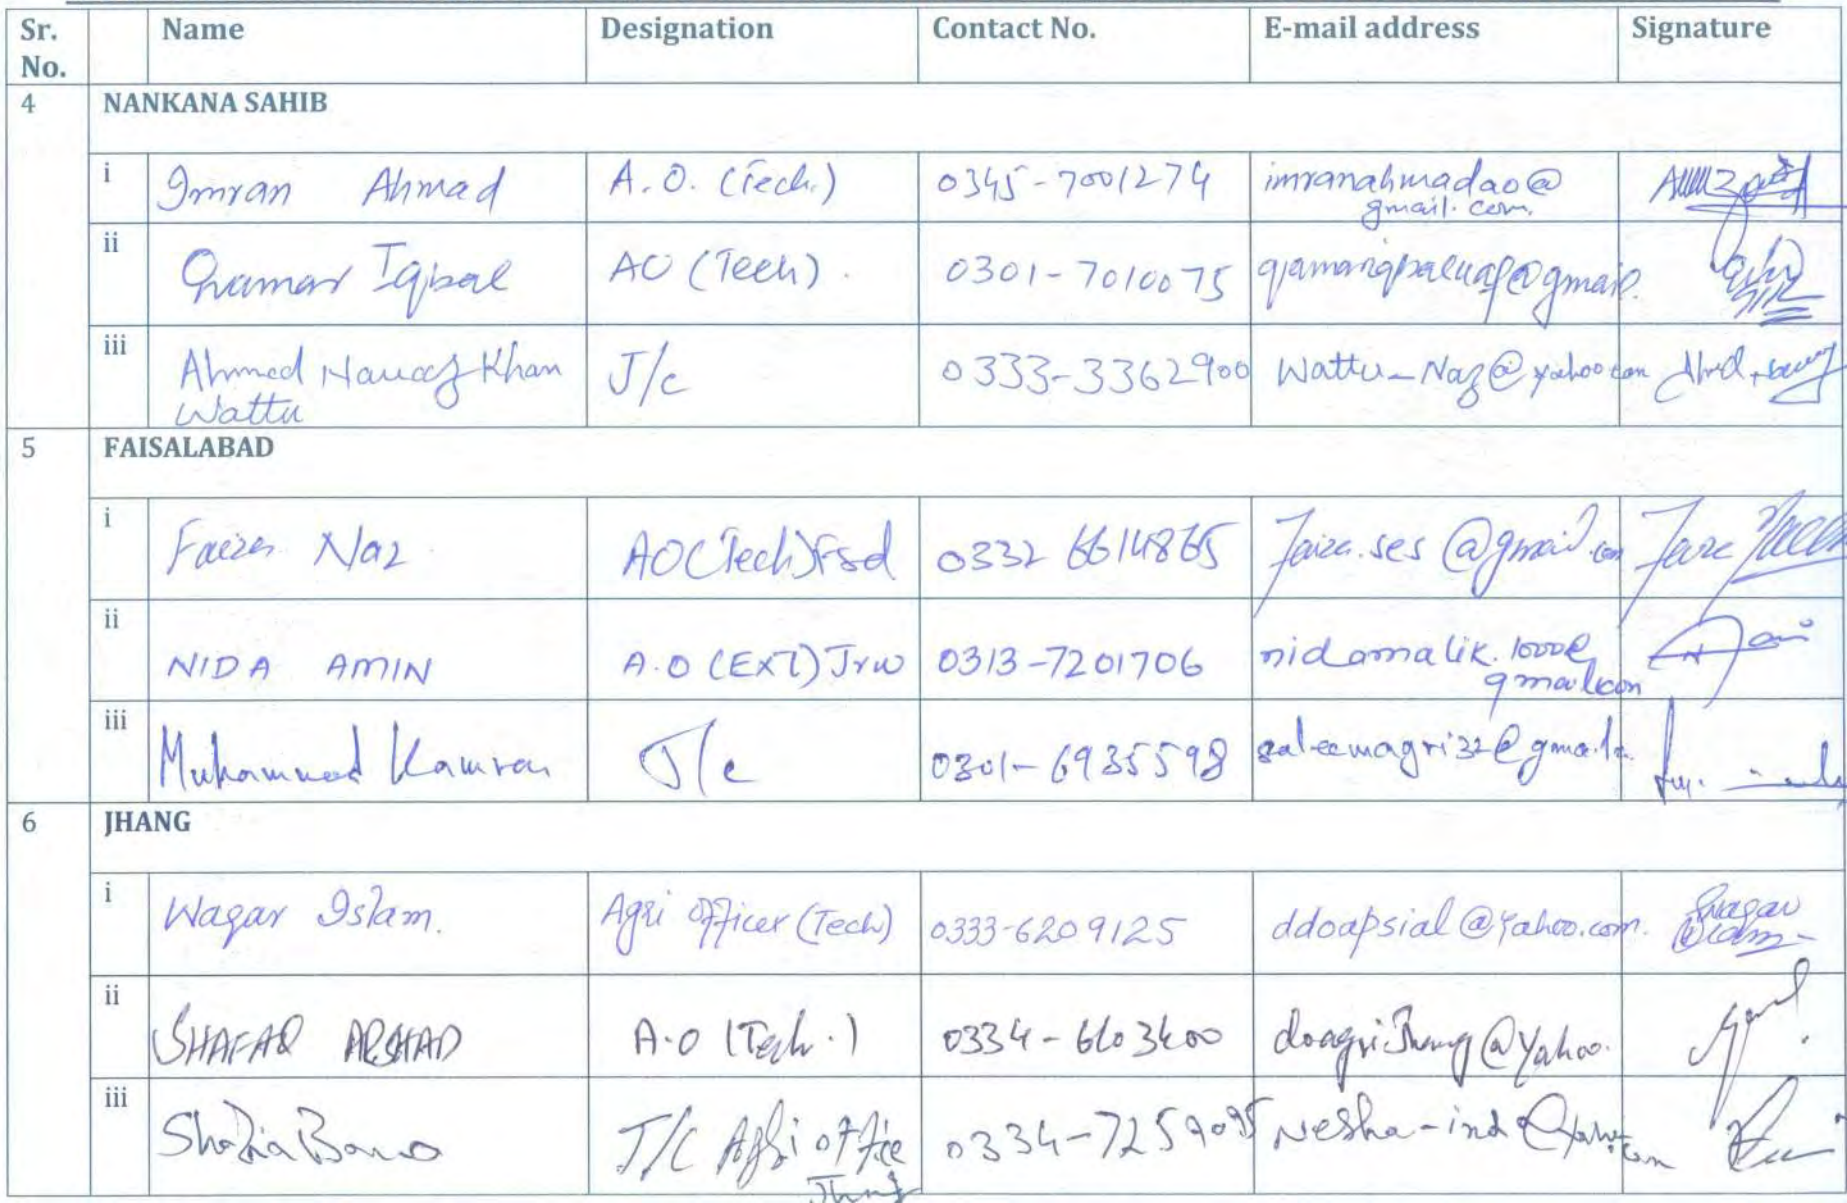 Sr. No. Name Designation Contact No. E-mail address Signature
4 NANKANA SAHIB
i Imran Ahmad A.O. (Tech.) 0345-7001274 imranahmadao@
gmail.com.
ii Qamar Iqbal AO (Tech). 0301-7010075 @gmail.
iii Ahmed Nawaz Khan J/c 0333-3362900 Wattu_Naz@yahoo.com
Wattu
5 FAISALABAD
i Faiza Naz AO(Tech)Fsd 0332 6614865 faiza.ses@gmail.com
ii NIDA AMIN A.O (EXT) Jrw 0313-7201706 nidamalik.1000@
gmail.com
iii Muhammad Kamran J/c 0301-6935598 saleemagri32@gmail.
6 JHANG
i Waqar Islam. Agri Officer (Tech) 0333-6209125 ddoapsial@yahoo.com. Waqar
Islam
ii SHAFAQ ARSHAD A.O (Tech.) 0334- doagriJhang@yahoo.
iii Shazia Bano J/C Agri office 0334- Nesha-ind@yahoo.com
Jhang